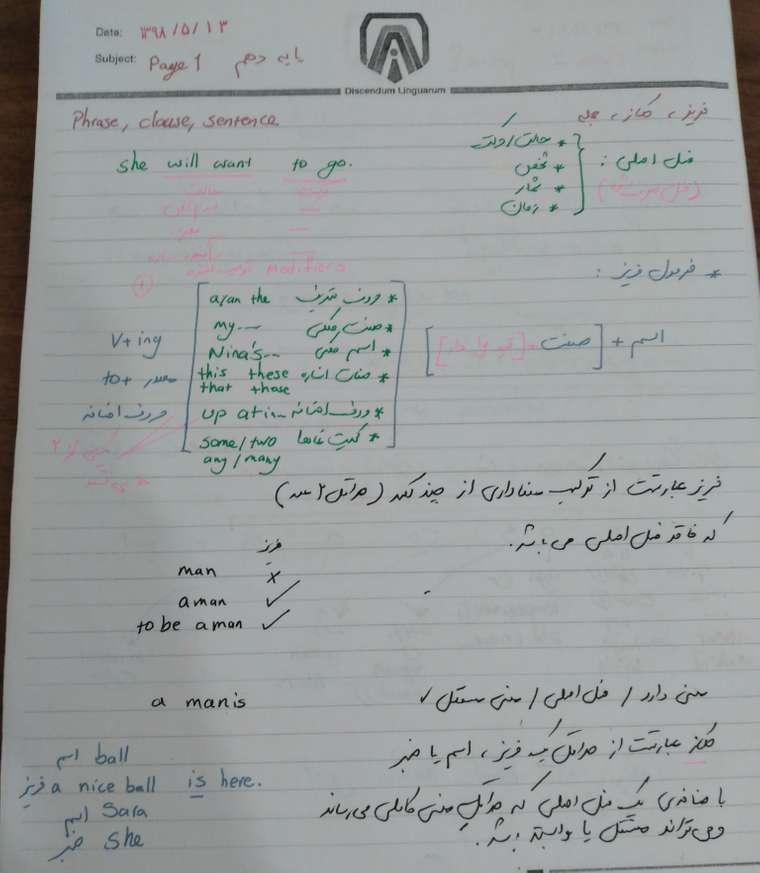 Date: ۱۳۹۸/۵/۱۳
Subject: Page 1 پایه دهم
Discendum Linguarum
Phrase, clause, sentence
فریز، کلاز، جمله
she will want to go.
فعل اصلی :
* حالت/وکت
* شخص
* شمار
* زمان
modifiers
* فرمول فریز :
اسم + [صفت +
V+ing
to+ مصدر
حروف اضافه
a/an the حروف تعریف *
my... صفت ملکی *
Nina's... اسم ملکی *
this these صفات اشاره *
that those
up at in... حروف اضافه *
some/two کمیت نماها *
any/many
فریز عبارتست از ترکیب معناداری از چند کلمه (حداقل ۲ عدد)
که فاقد فعل اصلی می باشد.
فریز
man ×
a man ✓
to be a man ✓
a man is
معنی دارد / فعل اصلی / معنی مستقل ✓
کلاز عبارتست از حداقل یک فریز، اسم یا ضمیر
با ضافه‌ی یک فعل اصلی که حداقل معنی کاملی می رساند
و می تواند مستقل یا وابسته باشد.
اسم ball
فریز a nice ball is here.
اسم Sara
ضمیر She